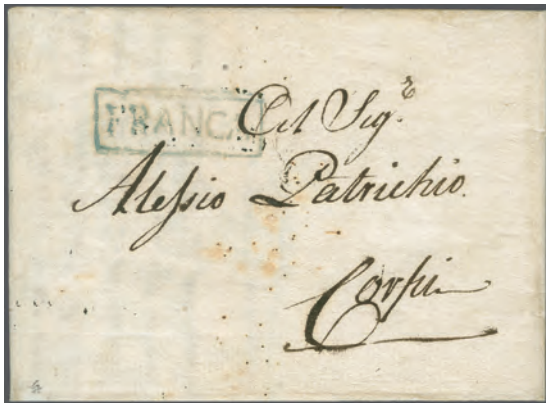 FRANCA
Al Sig.r
Alessio Patrichio.
Corfù